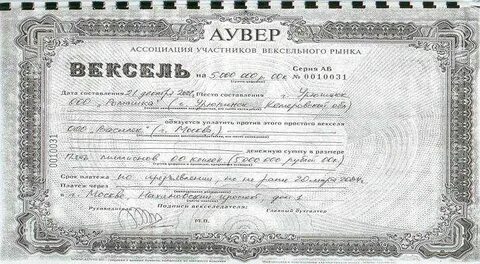 АУВЕР
АССОЦИАЦИЯ УЧАСТНИКОВ ВЕКСЕЛЬНОГО РЫНКА
Серия АБ
ВЕКСЕЛЬ на 5 000 000 р. 00 к № 0010031
Дата составления 21 2001. Место составления г. Урюпинск
ООО "Ромашка" (г. Урюпинск, Кемеровской обл)
обязуется уплатить против этого простого векселя
ООО "Василек" (г. Москва)
денежную сумму в размере
Пять миллионов 00 копеек (5 000 000 рублей 00к)
Срок платежа по предъявлении, но не ранее 20 марта
Платеж через
г. Москва, Нахимовский проспект, дом 1
Подписи векселедателя:
Руководитель
Главный бухгалтер
М.П.
0010031